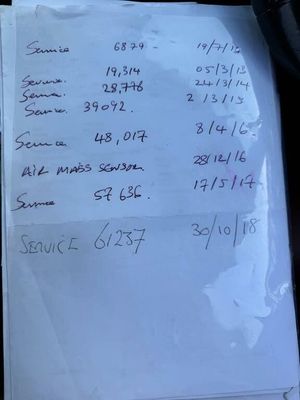 Service 6879 - 19/7/12
Service. 19,314 05/3/13
Service. 28,776 24/3/14
Service. 39092. 2/3/15
Service 48,017 8/4/6.
AIR MASS SENSOR. 28/12/16
Service 57636. 17/5/17.
SERVICE 61237 30/10/18